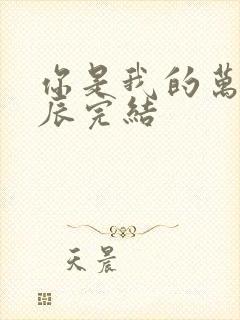 你是我的萬
辰完結
天晨